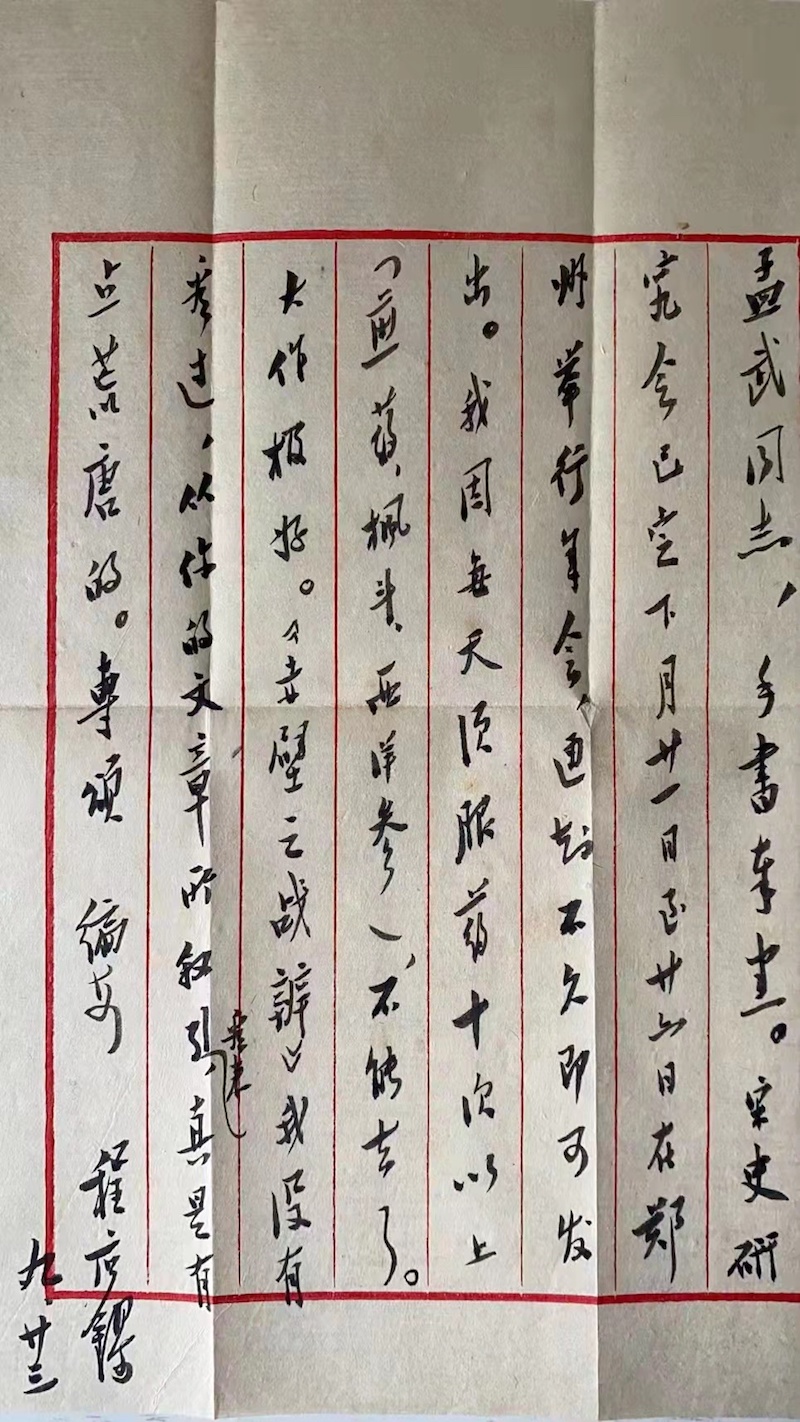 孟武同志，手书奉悉。宋史研
究会已定下月廿一日至廿六日在郑
州举行年会，通知不久即可发
出。我因每天须服药十次以上
（煎药、枫斗、西洋参），不能去了。
大作极好。《赤壁之战辨》我没有
看过，从你的文章所叙引看来，真是有
点荒唐的。专颂 编安 程应镠
九、廿三